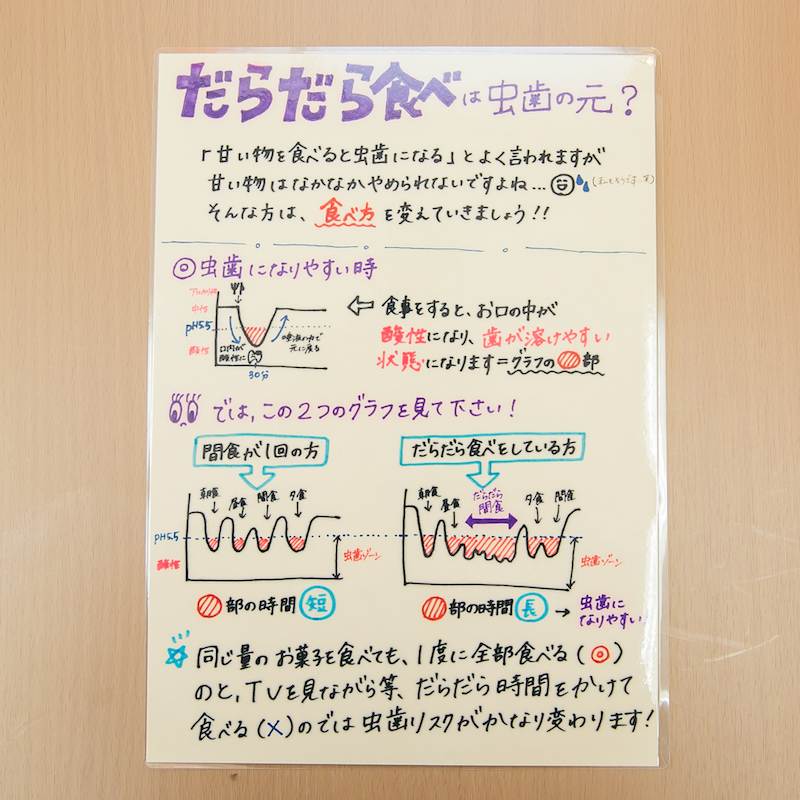 だらだら食べは虫歯の元？
「甘い物を食べると虫歯になる」とよく言われますが
甘い物はなかなかやめられないですよね…
そんな方は、食べ方を変えていきましょう!!
◎虫歯になりやすい時
アルカリ性
中性
pH5.5
酸性
口内が
酸性に
唾液の力で
元に戻る
30分
⇦ 食事をすると、お口の中が
酸性になり、歯が溶けやすい
状態になります=グラフの部
では、この2つのグラフを見て下さい!
間食が1回の方
朝食 昼食 間食 夕食
pH5.5
酸性
虫歯ゾーン
部の時間 短
だらだら食べをしている方
朝食 昼食 だらだら
間食
夕食 間食
虫歯ゾーン
部の時間 長 → 虫歯に
なりやすい
☆ 同じ量のお菓子を食べても、1度に全部食べる(◎)
のと、TVを見ながら等、だらだら時間をかけて
食べる(×)のでは虫歯リスクがかなり変わります!